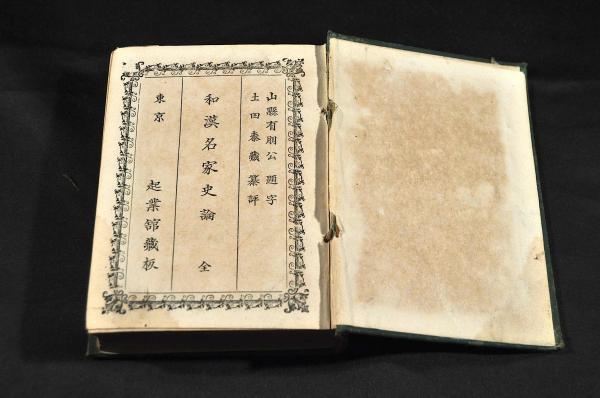 山縣有朋公題字
土田泰蔵纂評
和漢名家史論 全
東京 起業館藏板